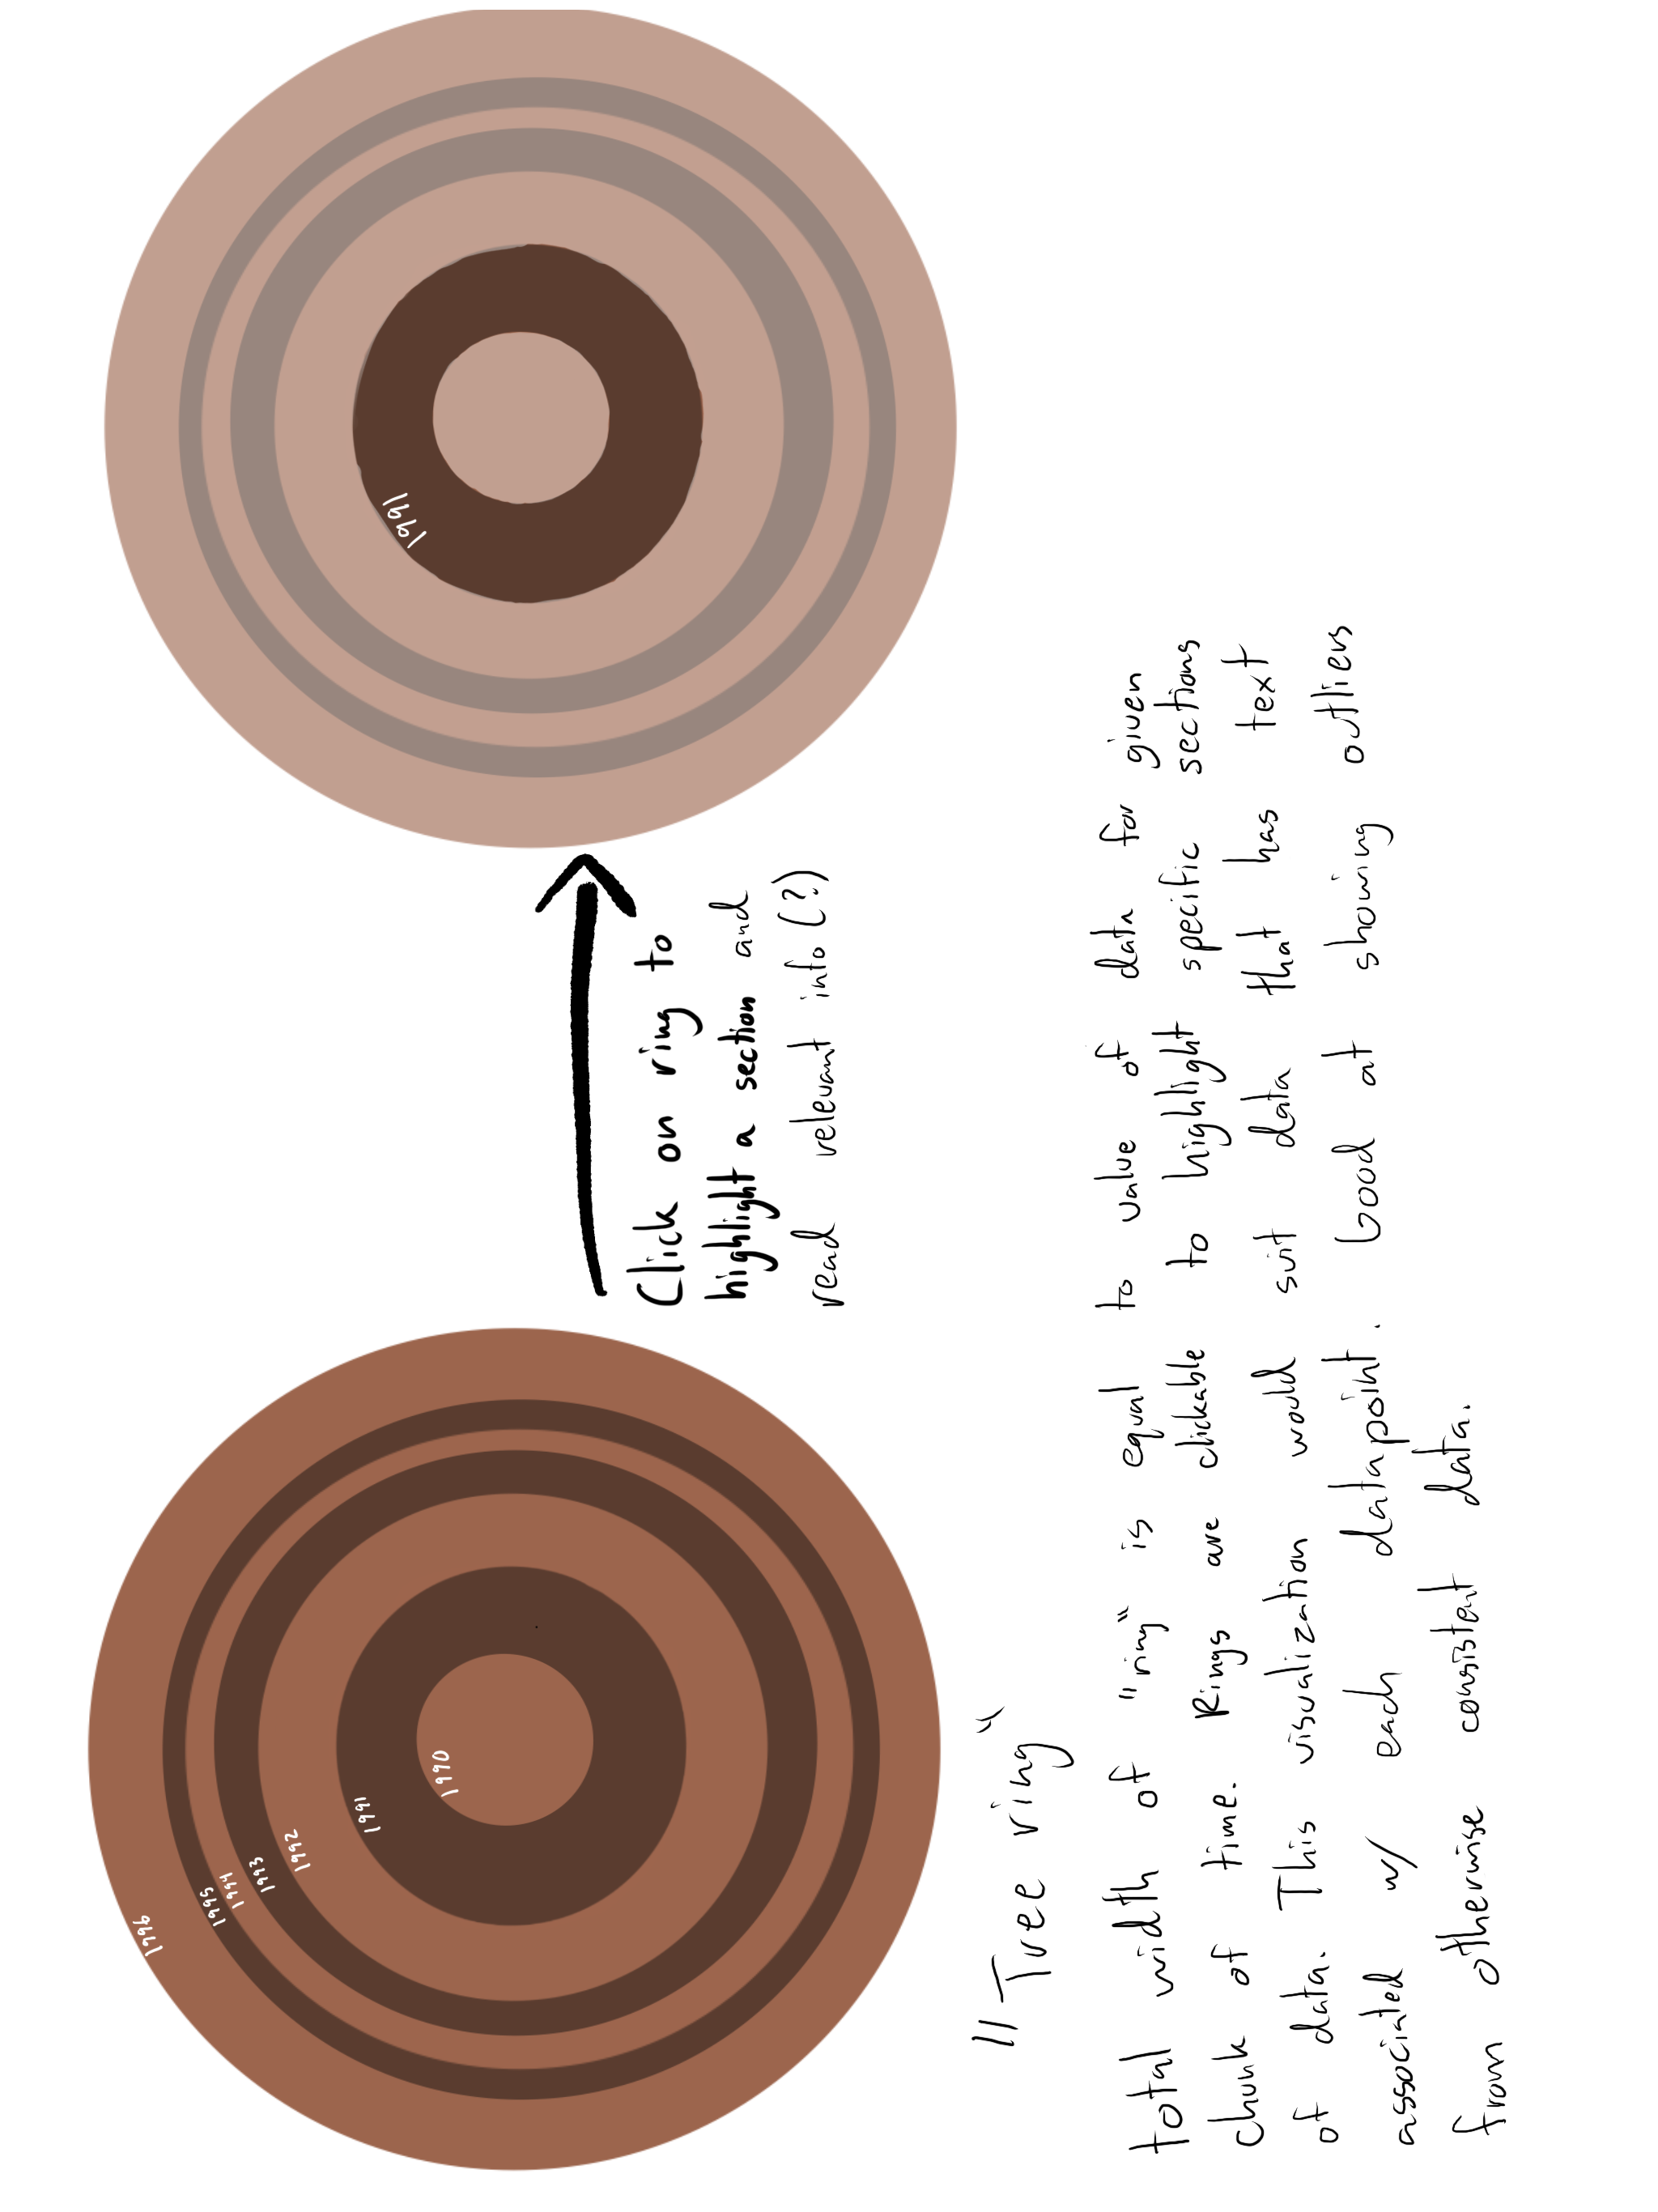 1990
1991
1992
1993
1994
1995
1996
Click on ring to
highlight a section and
read relevant info (?)
1991
"Tree ring"
total width of "ring" is equal to value of data for given
chunk of time. Rings are clickable to highlight specific sections
of data. This visualization would suit data that has text
associated w/ each datapoint. Good at showing outliers
from otherwise consistent data.